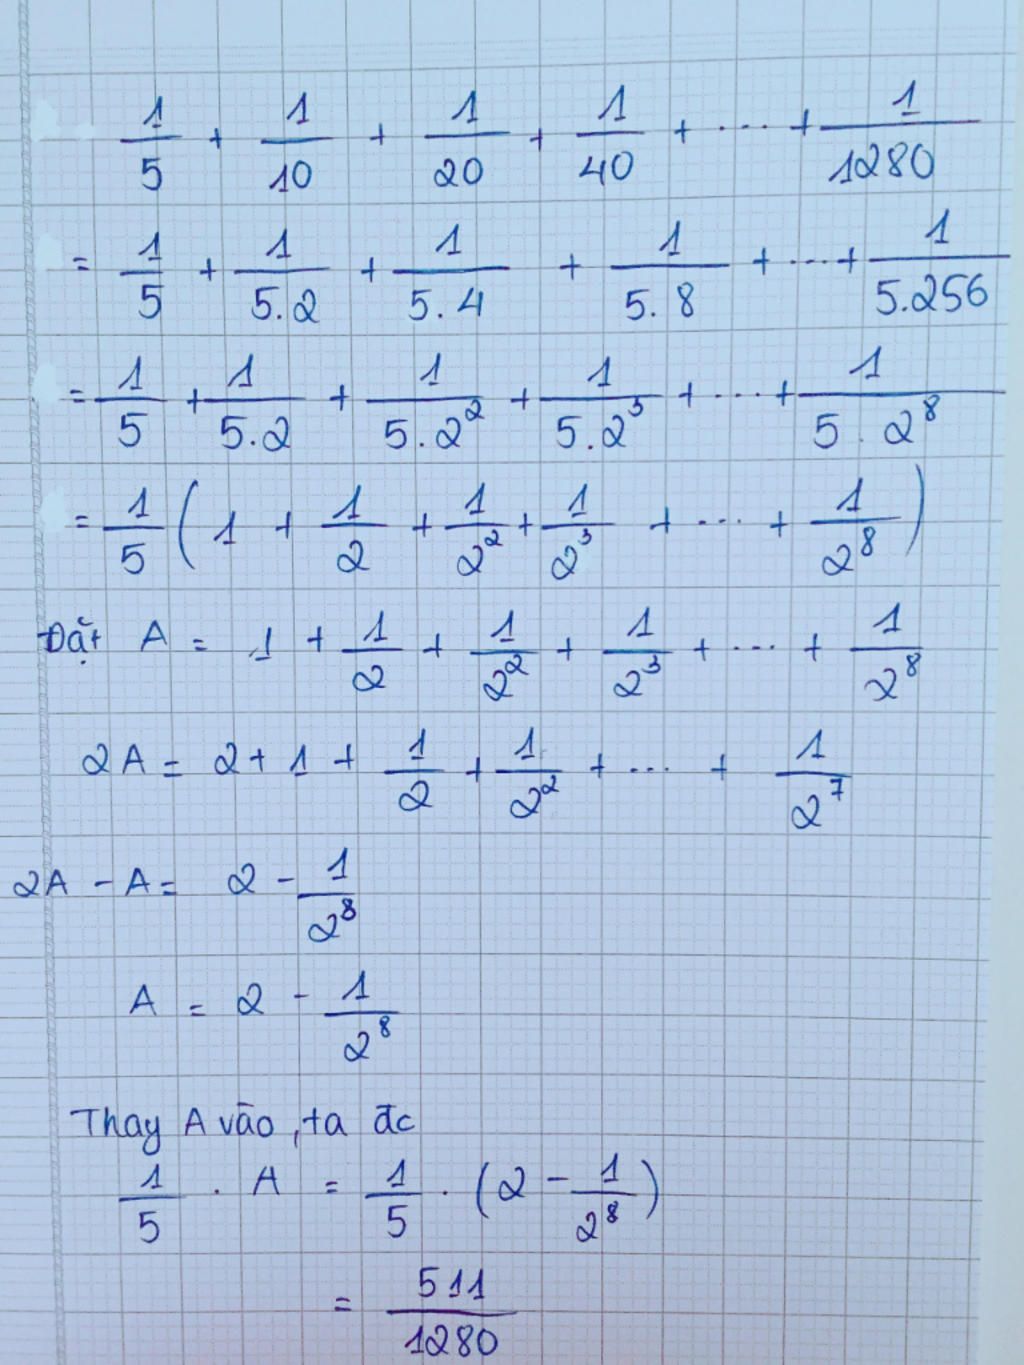 1/5 + 1/10 + 1/20 + 1/40 + ... + 1/1280
= 1/5 + 1/5.2 + 1/5.4 + 1/5.8 + ... + 1/5.256
= 1/5 + 1/5.2 + 1/5.2² + 1/5.2³ + ... + 1/5.2⁸
= 1/5 ( 1 + 1/2 + 1/2² + 1/2³ + ... + 1/2⁸ )
Đặt A = 1 + 1/2 + 1/2² + 1/2³ + ... + 1/2⁸
2A = 2 + 1 + 1/2 + 1/2² + ... + 1/2⁷
2A - A = 2 - 1/2⁸
A = 2 - 1/2⁸
Thay A vào, ta đc
1/5 . A = 1/5 . (2 - 1/2⁸)
= 511/1280